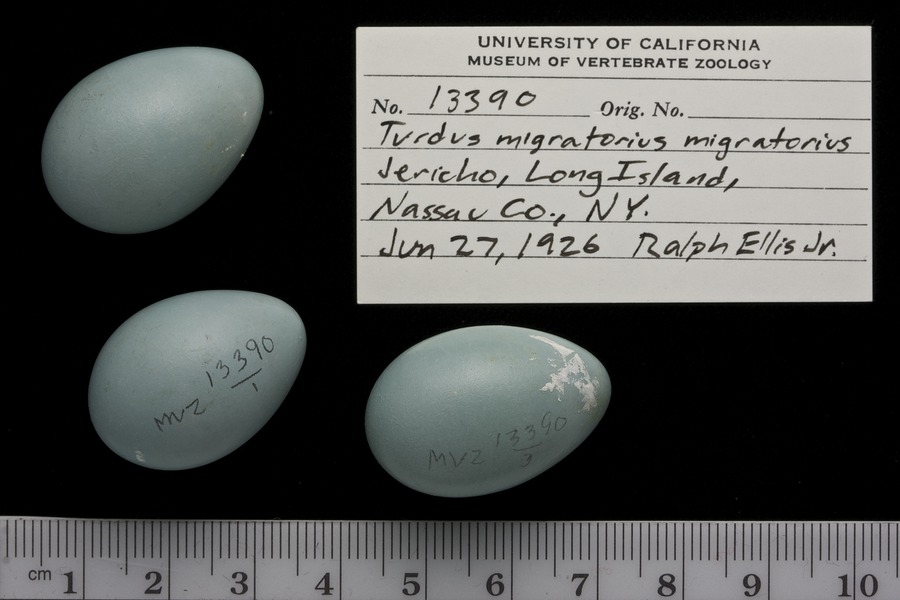 UNIVERSITY OF CALIFORNIA
MUSEUM OF VERTEBRATE ZOOLOGY
No. 13390 Orig. No.
Turdus migratorius migratorius
Jericho, Long Island,
Nassau Co., NY.
Jun 27, 1926 Ralph Ellis Jr.
13390
1
MVZ
MVZ 13390
3
cm 1 2 3 4 5 6 7 8 9 10